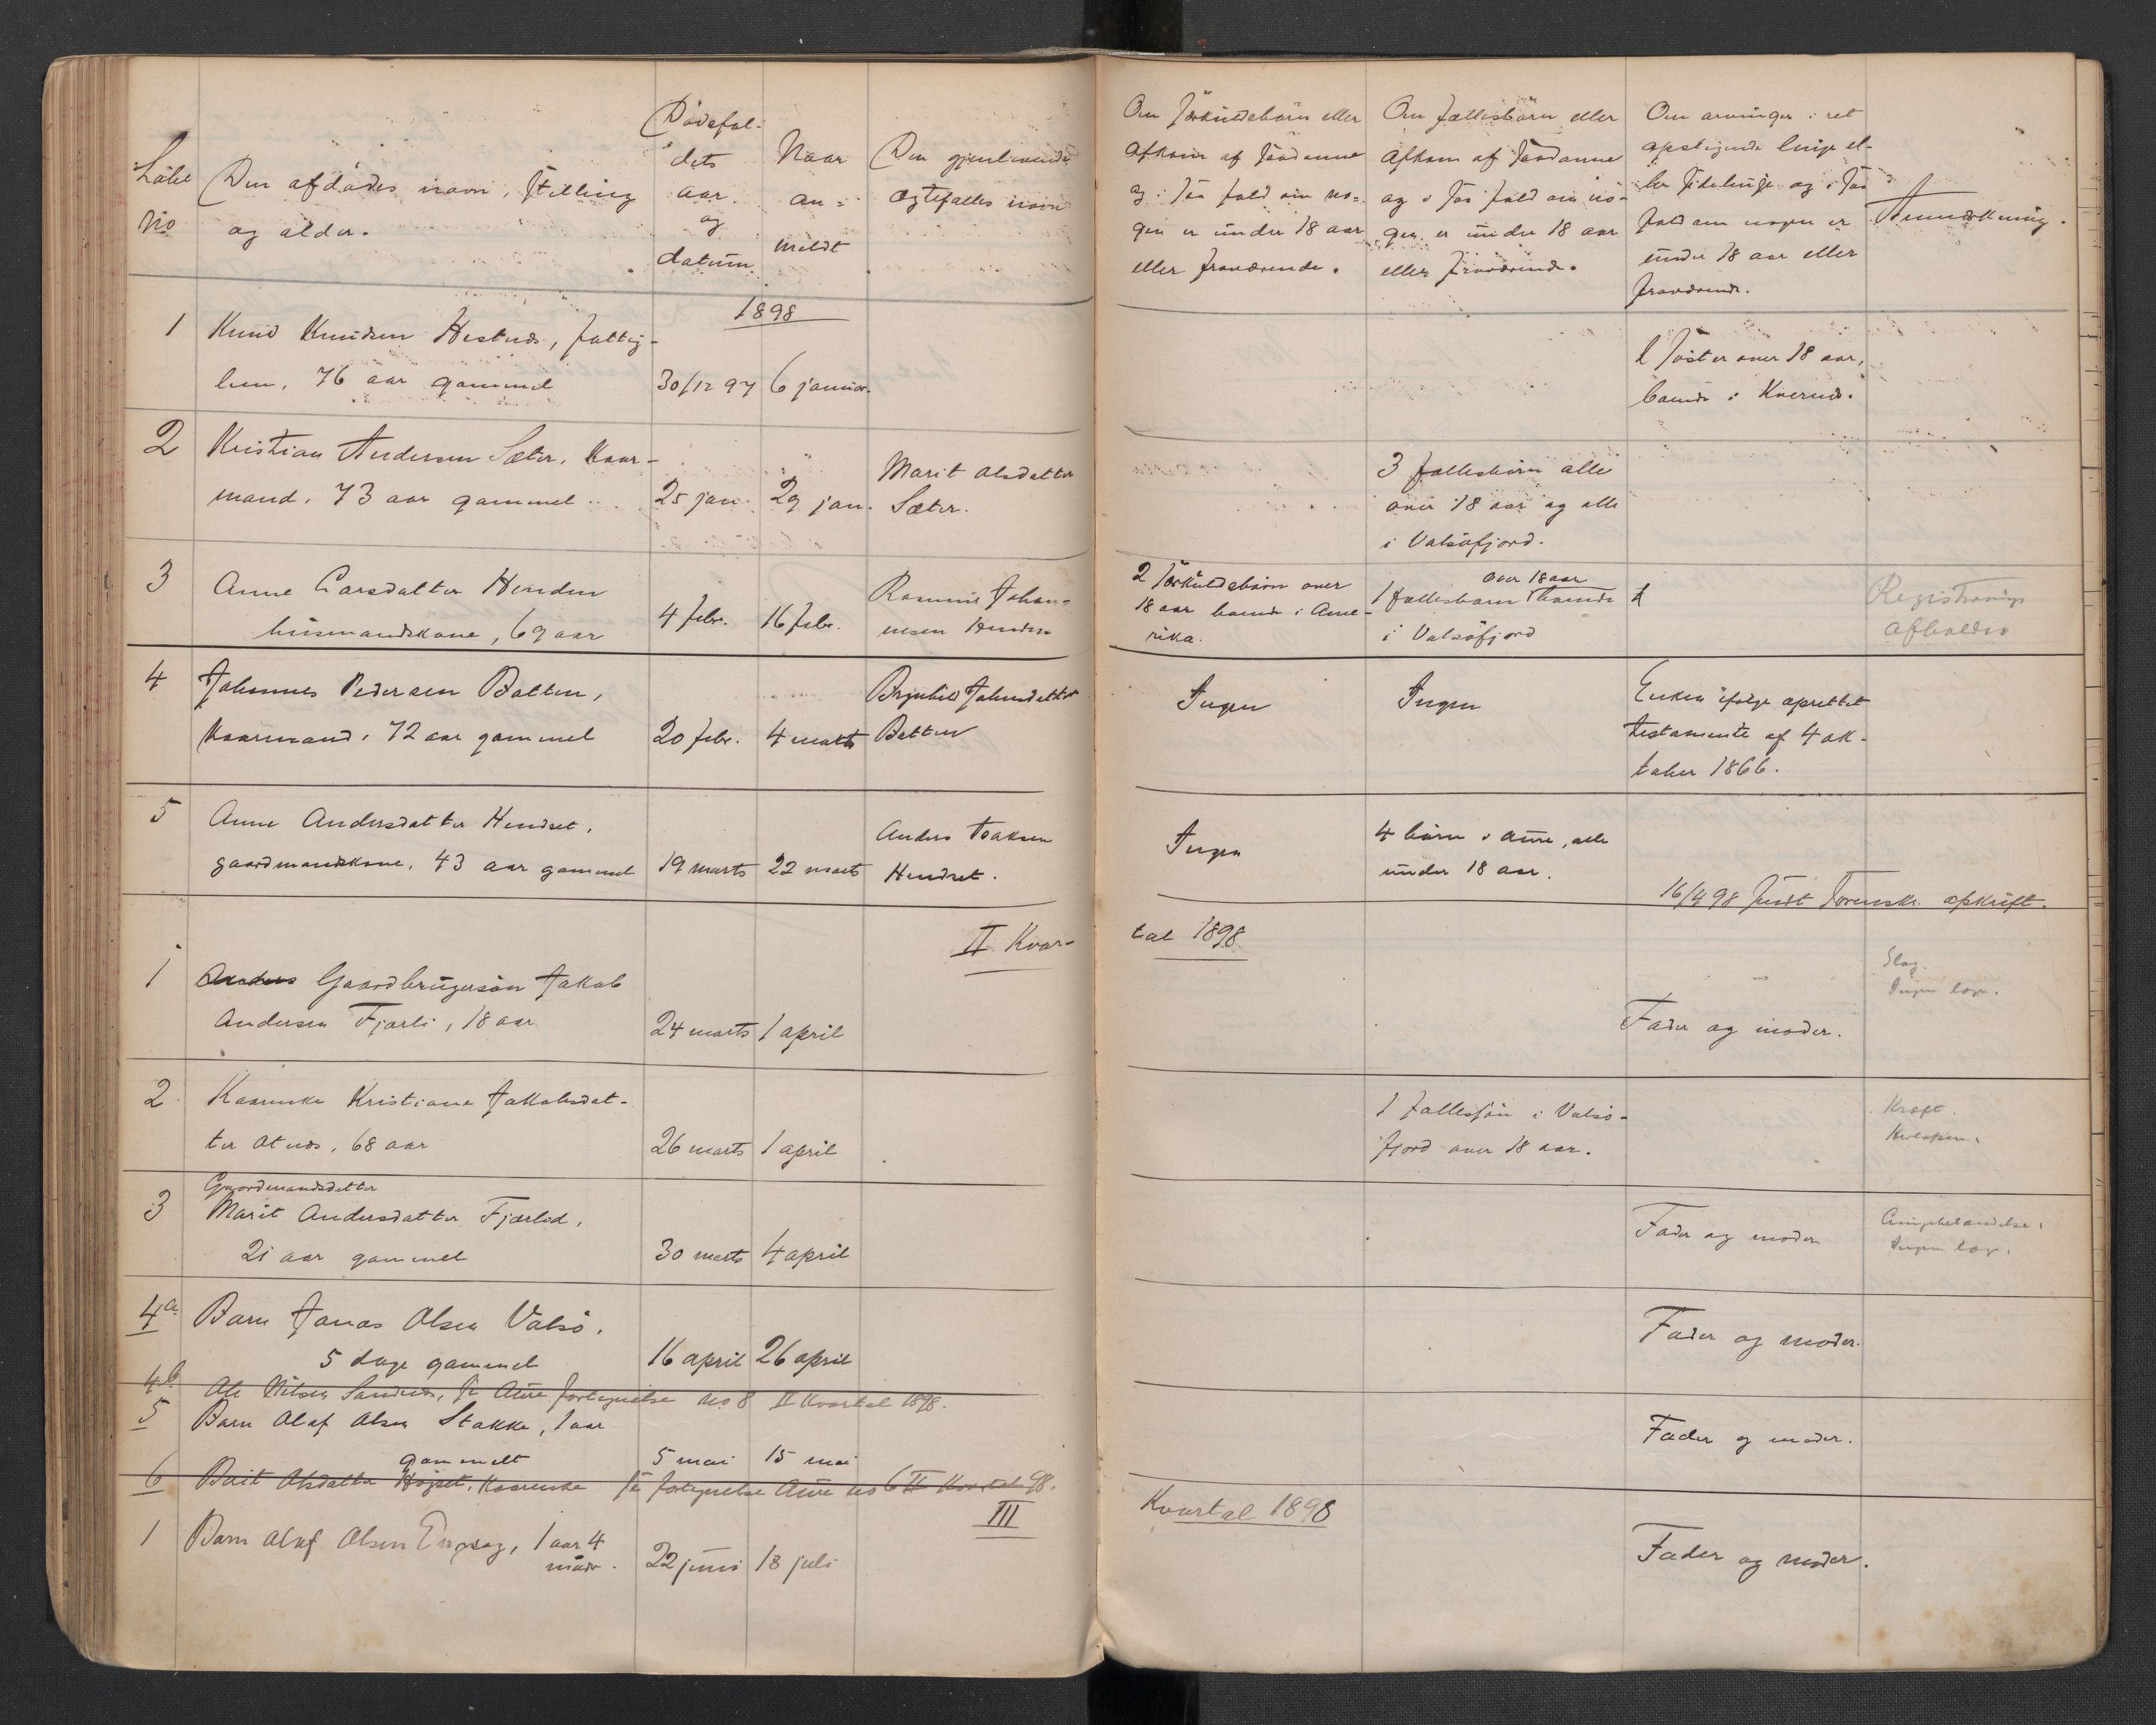 Løbe
No
Den afdødes navn, stilling
og alder.
Dødsfal-
dets
aar
og
datum
Naar
an-
meldt
Den gjenlevende
ægtefælles navn
Om særkuldsbørn eller
afkom af saadanne
og i saa fald om no-
gen er under 18 aar
eller fraværende.
Om fællesbørn eller
afkom af saadanne
og i saa fald om no-
gen er under 18 aar
eller fraværende.
Om arvinger i ret
opstigende linje el-
ler sidelinje og i saa
fald om nogen er
under 18 aar eller
fraværende.
Anmærkning.
1898
1
Knud Knudsen Hestnes, fattig-
lem, 76 aar gammel
30/12 97
6 januar.
1 søster over 18 aar,
boende i Kvernes.
2
Kristian Andersen Sæter, kaar-
mand, 73 aar gammel
25 jan.
29 jan.
Marit Olsdatter
Sæter.
3 fællesbørn alle
over 18 aar og alle
i Valsøfjord.
3
Anne Larsdatter Henden
husmandskone, 69 aar
4 febr.
16 febr.
Johan-
nesen Henden
2 særkuldsbørn over
18 aar boende i Ame-
rika.
over 18 aar
1 fællesbarn boende
i Valsøfjord
Registrering
afholdes
4
Johannes Pedersen Botten,
kaarmand, 72 aar gammel
20 febr.
4 marts
Brynhild Johnsdatter
Botten
Ingen
Ingen
Enken ifølge oprettet
testamente af 4 ok-
tober 1866.
5
Anne Andersdatter Hendset,
gaardmandskone, 43 aar gammel
19 marts
22 marts
Anders Isaksen
Hendset.
Ingen
4 børn i Aure, alle
under 18 aar.
16/4 98 sendt Sorensk. afskrift.
II Kvar-
tal 1898
1
Anders Gaardbrugersøn Jakob
Andersen Fjærli, 18 aar
24 marts
1 april
Fader og moder.
Slag.
Ingen lov.
2
Kaarenke Kristiane Jakobsdat-
ter Otnes, 68 aar
26 marts
1 april
1 fællessøn i Valsø-
fjord over 18 aar.
Kræft.
3
Gaardmandsdatter
Marit Andersdatter
21 aar gammel
30 marts
4 april
Fader og moder
Ingen lov.
4a
Barn Jonas Olsen Valsø,
5 dage gammel
16 april
26 april
Fader og moder.
4b
Ole Nilsen Sandnes, se Aure fortegnelse No 8 II Kvartal 1898.
5
Barn Olaf Olsen Stokke, 1 aar
gammelt
5 mai
15 mai
Fader og moder.
6
Berit Olsdatter Højset, kaarenke se fortegnelse Aure No 6 II Kvartal 98.
III
Kvartal 1898
1
Barn Oluf Olsen Engdag, 1 aar 4
maan.
22 juni
18 juli
Fader og moder.